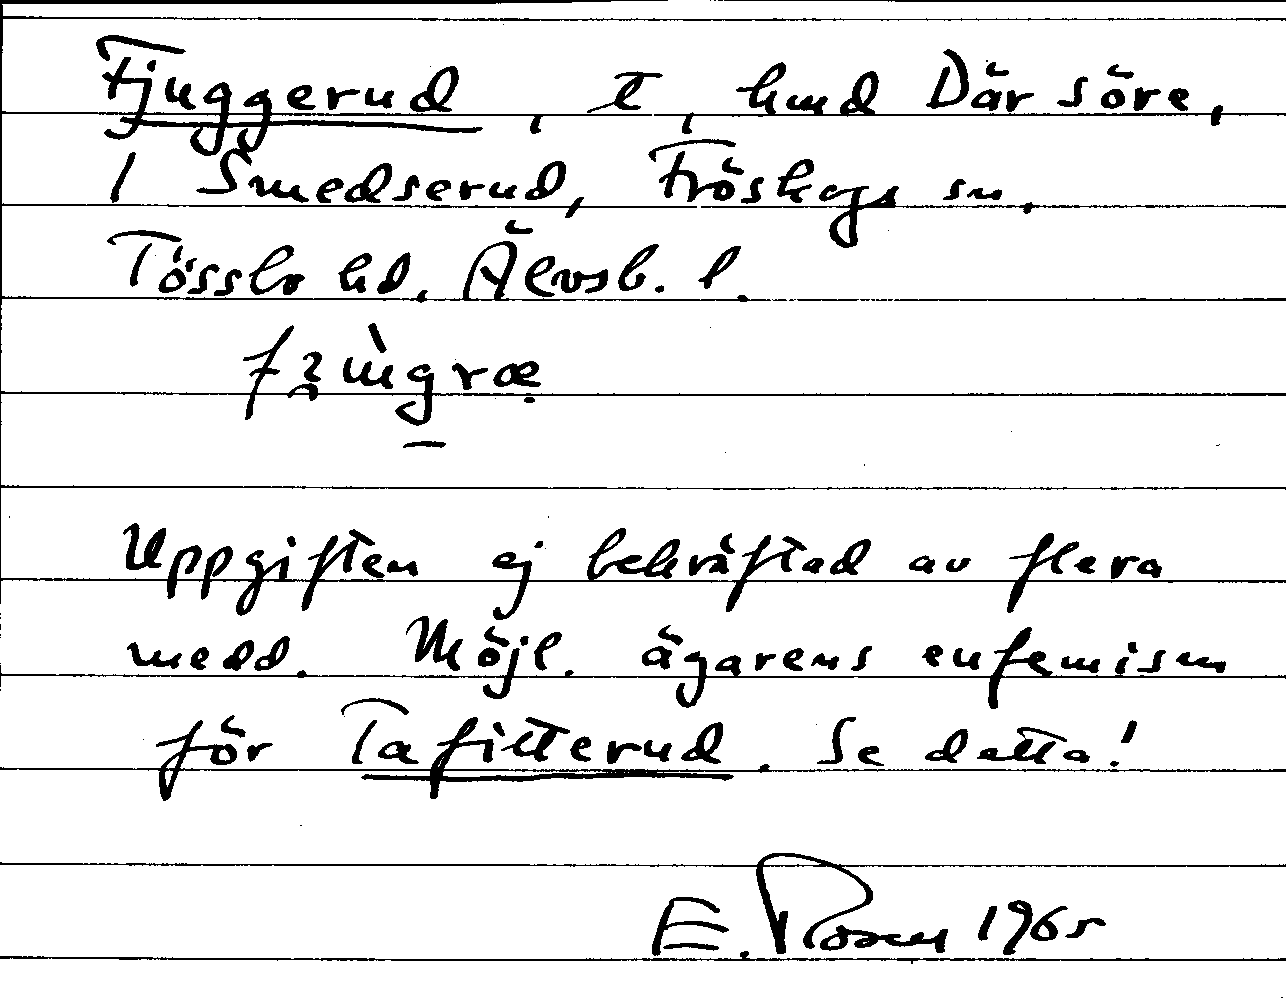 Fjuggerud, t, hmd Där söre,
1 Smedserud, Fröskogs sn.
Tössbo hd. Älvsb. l.
Uppgiften ej bekräftad av flera
medd. Möjl. ägarens eufemism
för Tafitterud. Se detta!
E. Rosen 1965